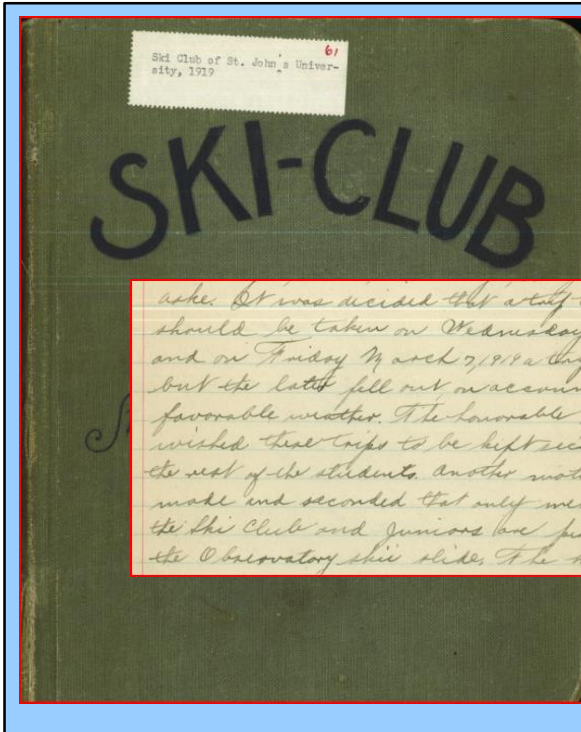 61
Ski Club of St. John's Univer-
sity, 1919
SKI-CLUB
aske. It was decided that a
should be taken on Wednesday
and on Friday March 7, 1919 a
but the later fell out on accoun
favorable weather. The honorable
wished these trips to be kept sec
the rest of the students. Another mot
made and seconded that only me
the Ski Club and Juniors are
the Observatory skii slide. The